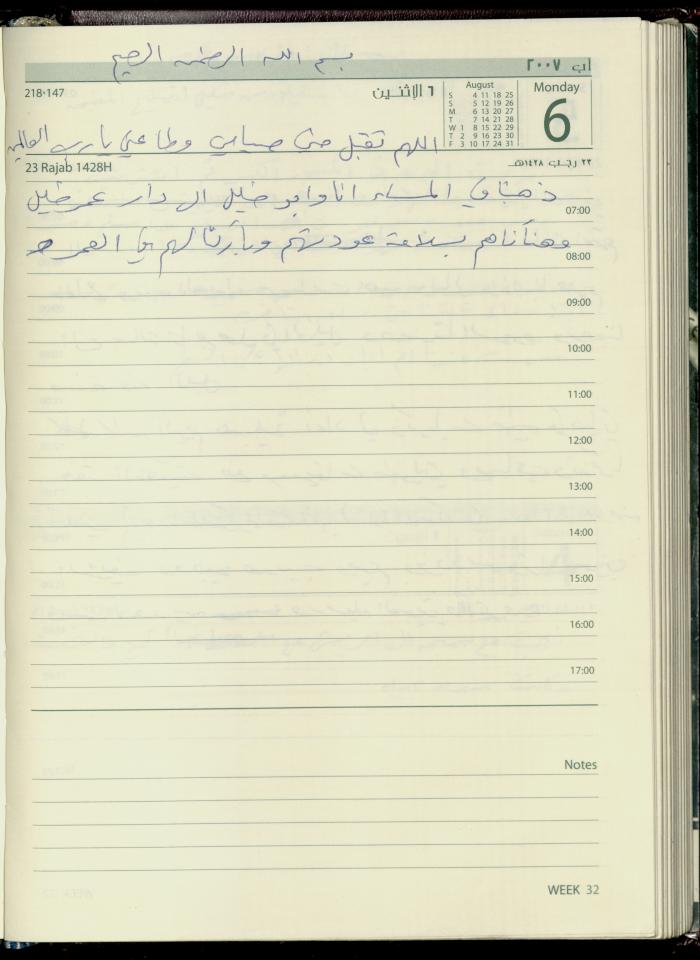 بسم الله الرحمن الرحيم
آب ٢٠٠٧
218-147
٦ الاثنين
August
Monday
S 4 11 18 25
S 5 12 19 26
M 6 13 20 27
T 7 14 21 28
W 1 8 15 22 29
T 2 9 16 23 30
F 3 10 17 24 31
6
اللهم تقبل مني صيامي وطاعتي يا رب العالمين
23 Rajab 1428H
٢٣ رجب ١٤٢٨هـ
ذهبنا في المساء انا وابو خليل الى دار عمر خليل
07:00
وهنأناهم بسلامة عودتهم وباركنا لهم العمره
08:00
09:00
10:00
11:00
12:00
13:00
14:00
15:00
16:00
17:00
Notes
WEEK 32